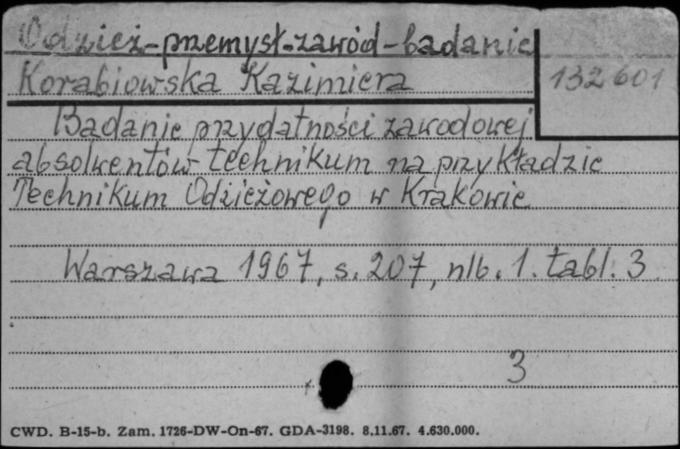 Odzież-przemysł-zawód-badanie
Korabiowska Kazimiera
132601
Badanie przydatności zawodowej
absolwentów technikum na przykładzie
Technikum Odzieżowego w Krakowie
Warszawa 1967, s. 207, nlb. 1. tabl. 3
3
CWD. B-15-b. Zam. 1726-DW-On-67. GDA-3198. 8.11.67. 4.630.000.